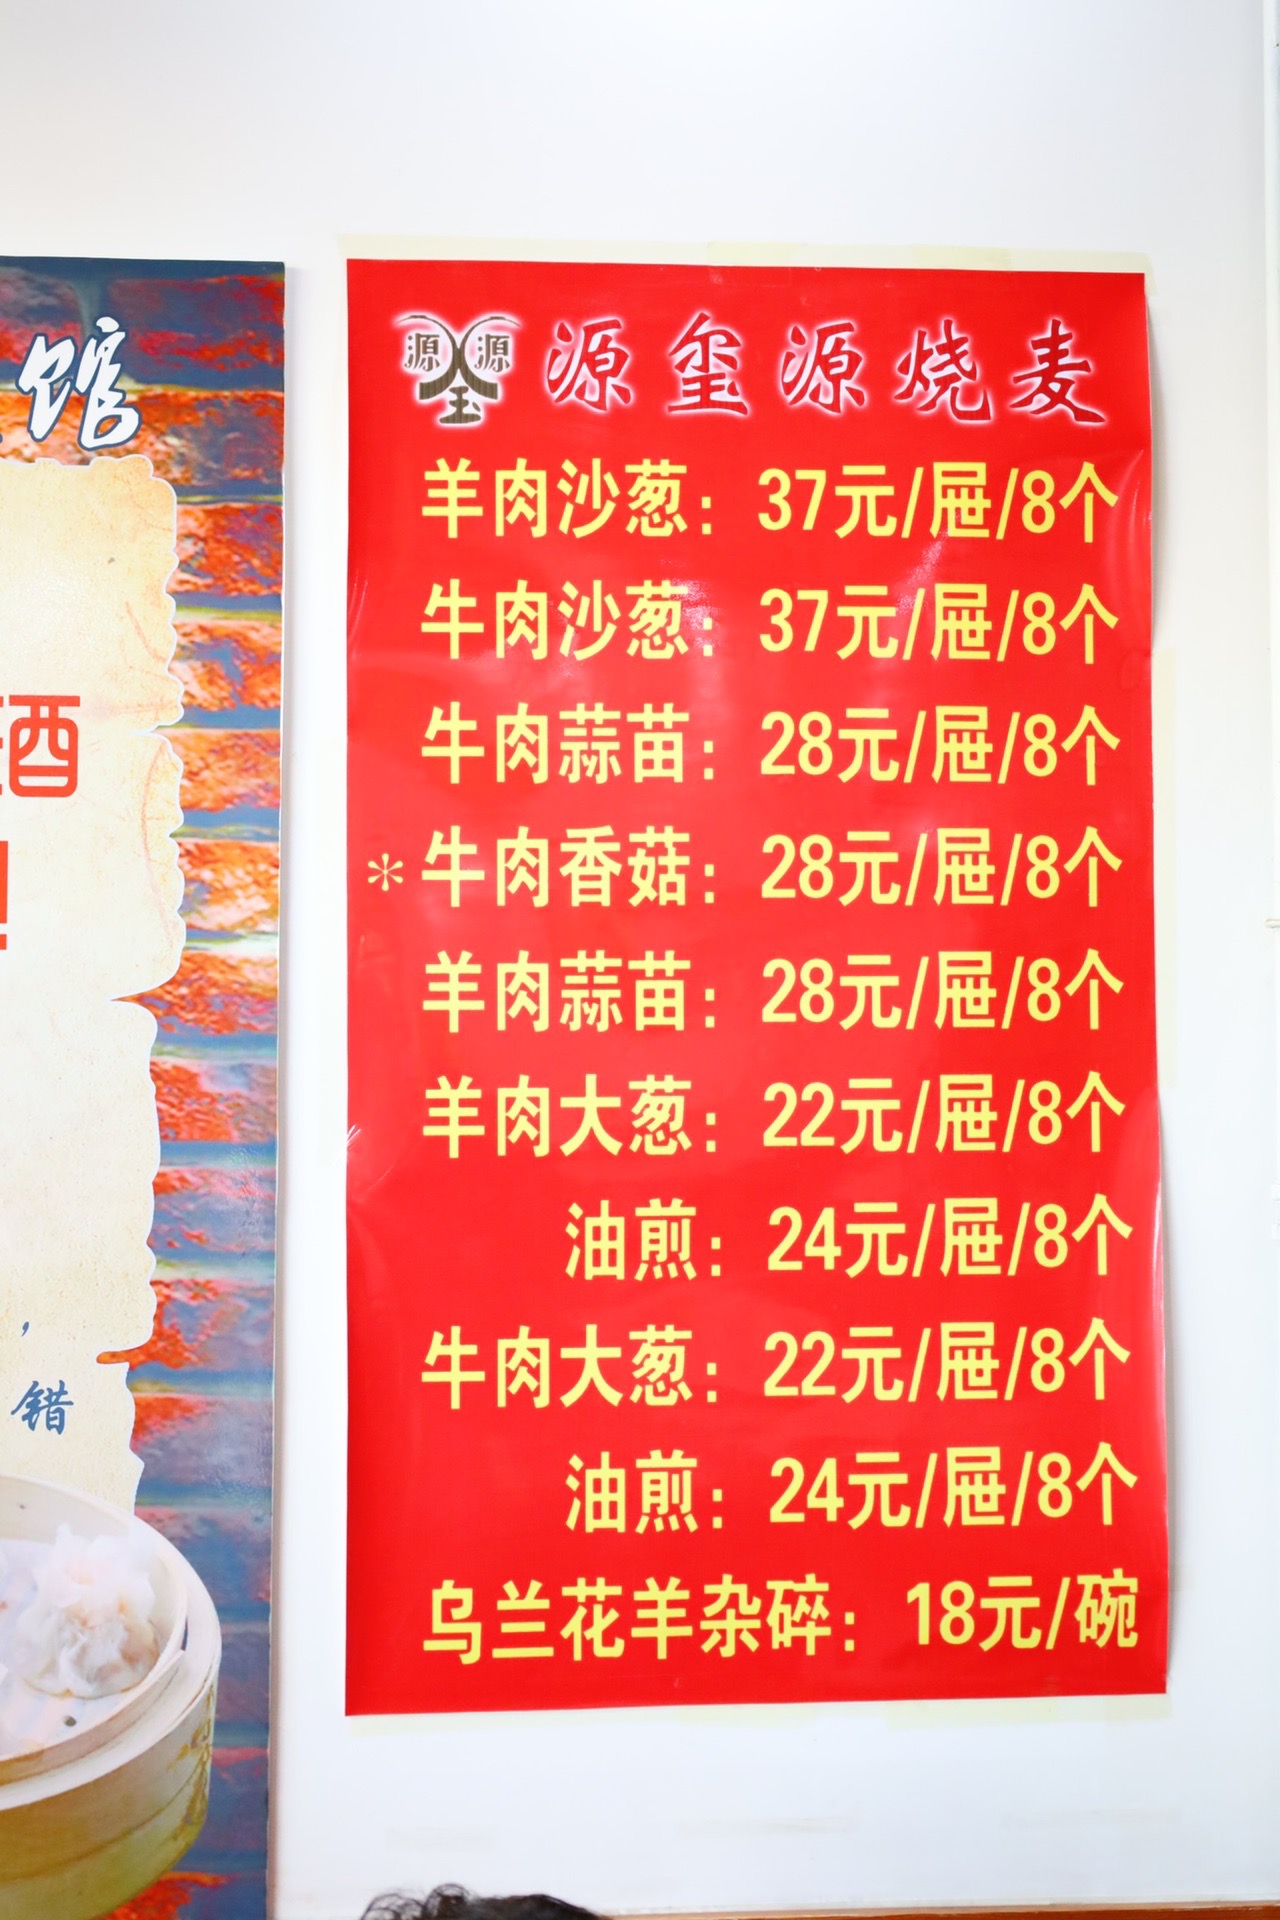 馆
酒
错
源 源
玺 源玺源烧麦
羊肉沙葱：37元/屉/8个
牛肉沙葱：37元/屉/8个
牛肉蒜苗：28元/屉/8个
*牛肉香菇：28元/屉/8个
羊肉蒜苗：28元/屉/8个
羊肉大葱：22元/屉/8个
油煎：24元/屉/8个
牛肉大葱：22元/屉/8个
油煎：24元/屉/8个
乌兰花羊杂碎：18元/碗